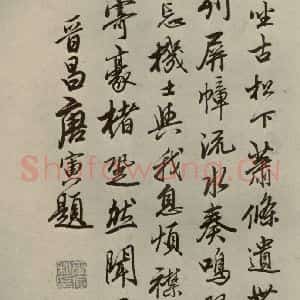 坐古松下萧條遺世
列屏幛流水奏鳴
忘機士與我息煩襟
寄豪楮跫然聞
晉昌唐寅題